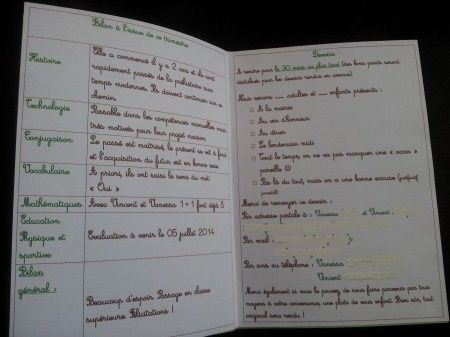 Bilan à l'issue de ce trimestre
Histoire
Elle a commencé il y a 2 ans et ils sont
rapidement passés de la préhistoire aux
temps modernes. Ils doivent continuer sur ce
chemin.
Technologie
Passable dans les compétences manuelles mais
très motivés pour leur projet maison
Conjugaison
Le passé est maîtrisé, le présent su et à fond
et l'acquisition du futur est en bonne voie
Vocabulaire
A priori, ils ont saisi le sens du mot
« Oui »
Mathématiques
Avec Vincent et Vanessa 1+1 font déjà 5
Education
Physique et
sportive
Evaluation à venir le 05 juillet 2014
Bilan
général :
Beaucoup d'espoir. Passage en classe
supérieure. Félicitations !
Devoirs
A rendre pour le 30 mars au plus tard (des bons points seront
distribués pour les devoirs rendus en avance)
Nous serons __ adultes et __ enfants présents :
□ A la mairie
□ Au vin d'honneur
□ Au dîner
□ Le lendemain midi
□ Tout le temps, on ne va pas manquer une « occas »
pareille ☺
□ Pas là du tout, mais on a une bonne excuse
Merci de renvoyer ce devoir :
Par adresse postale à : Vanessa et Vincent
Par mail :
Par sms ou téléphone : Vanessa
Vincent
Merci également si vous le pouvez de nous faire parvenir par tous
moyens à votre convenance, une photo de vous enfant. Bien sûr, tout
original sera rendu !